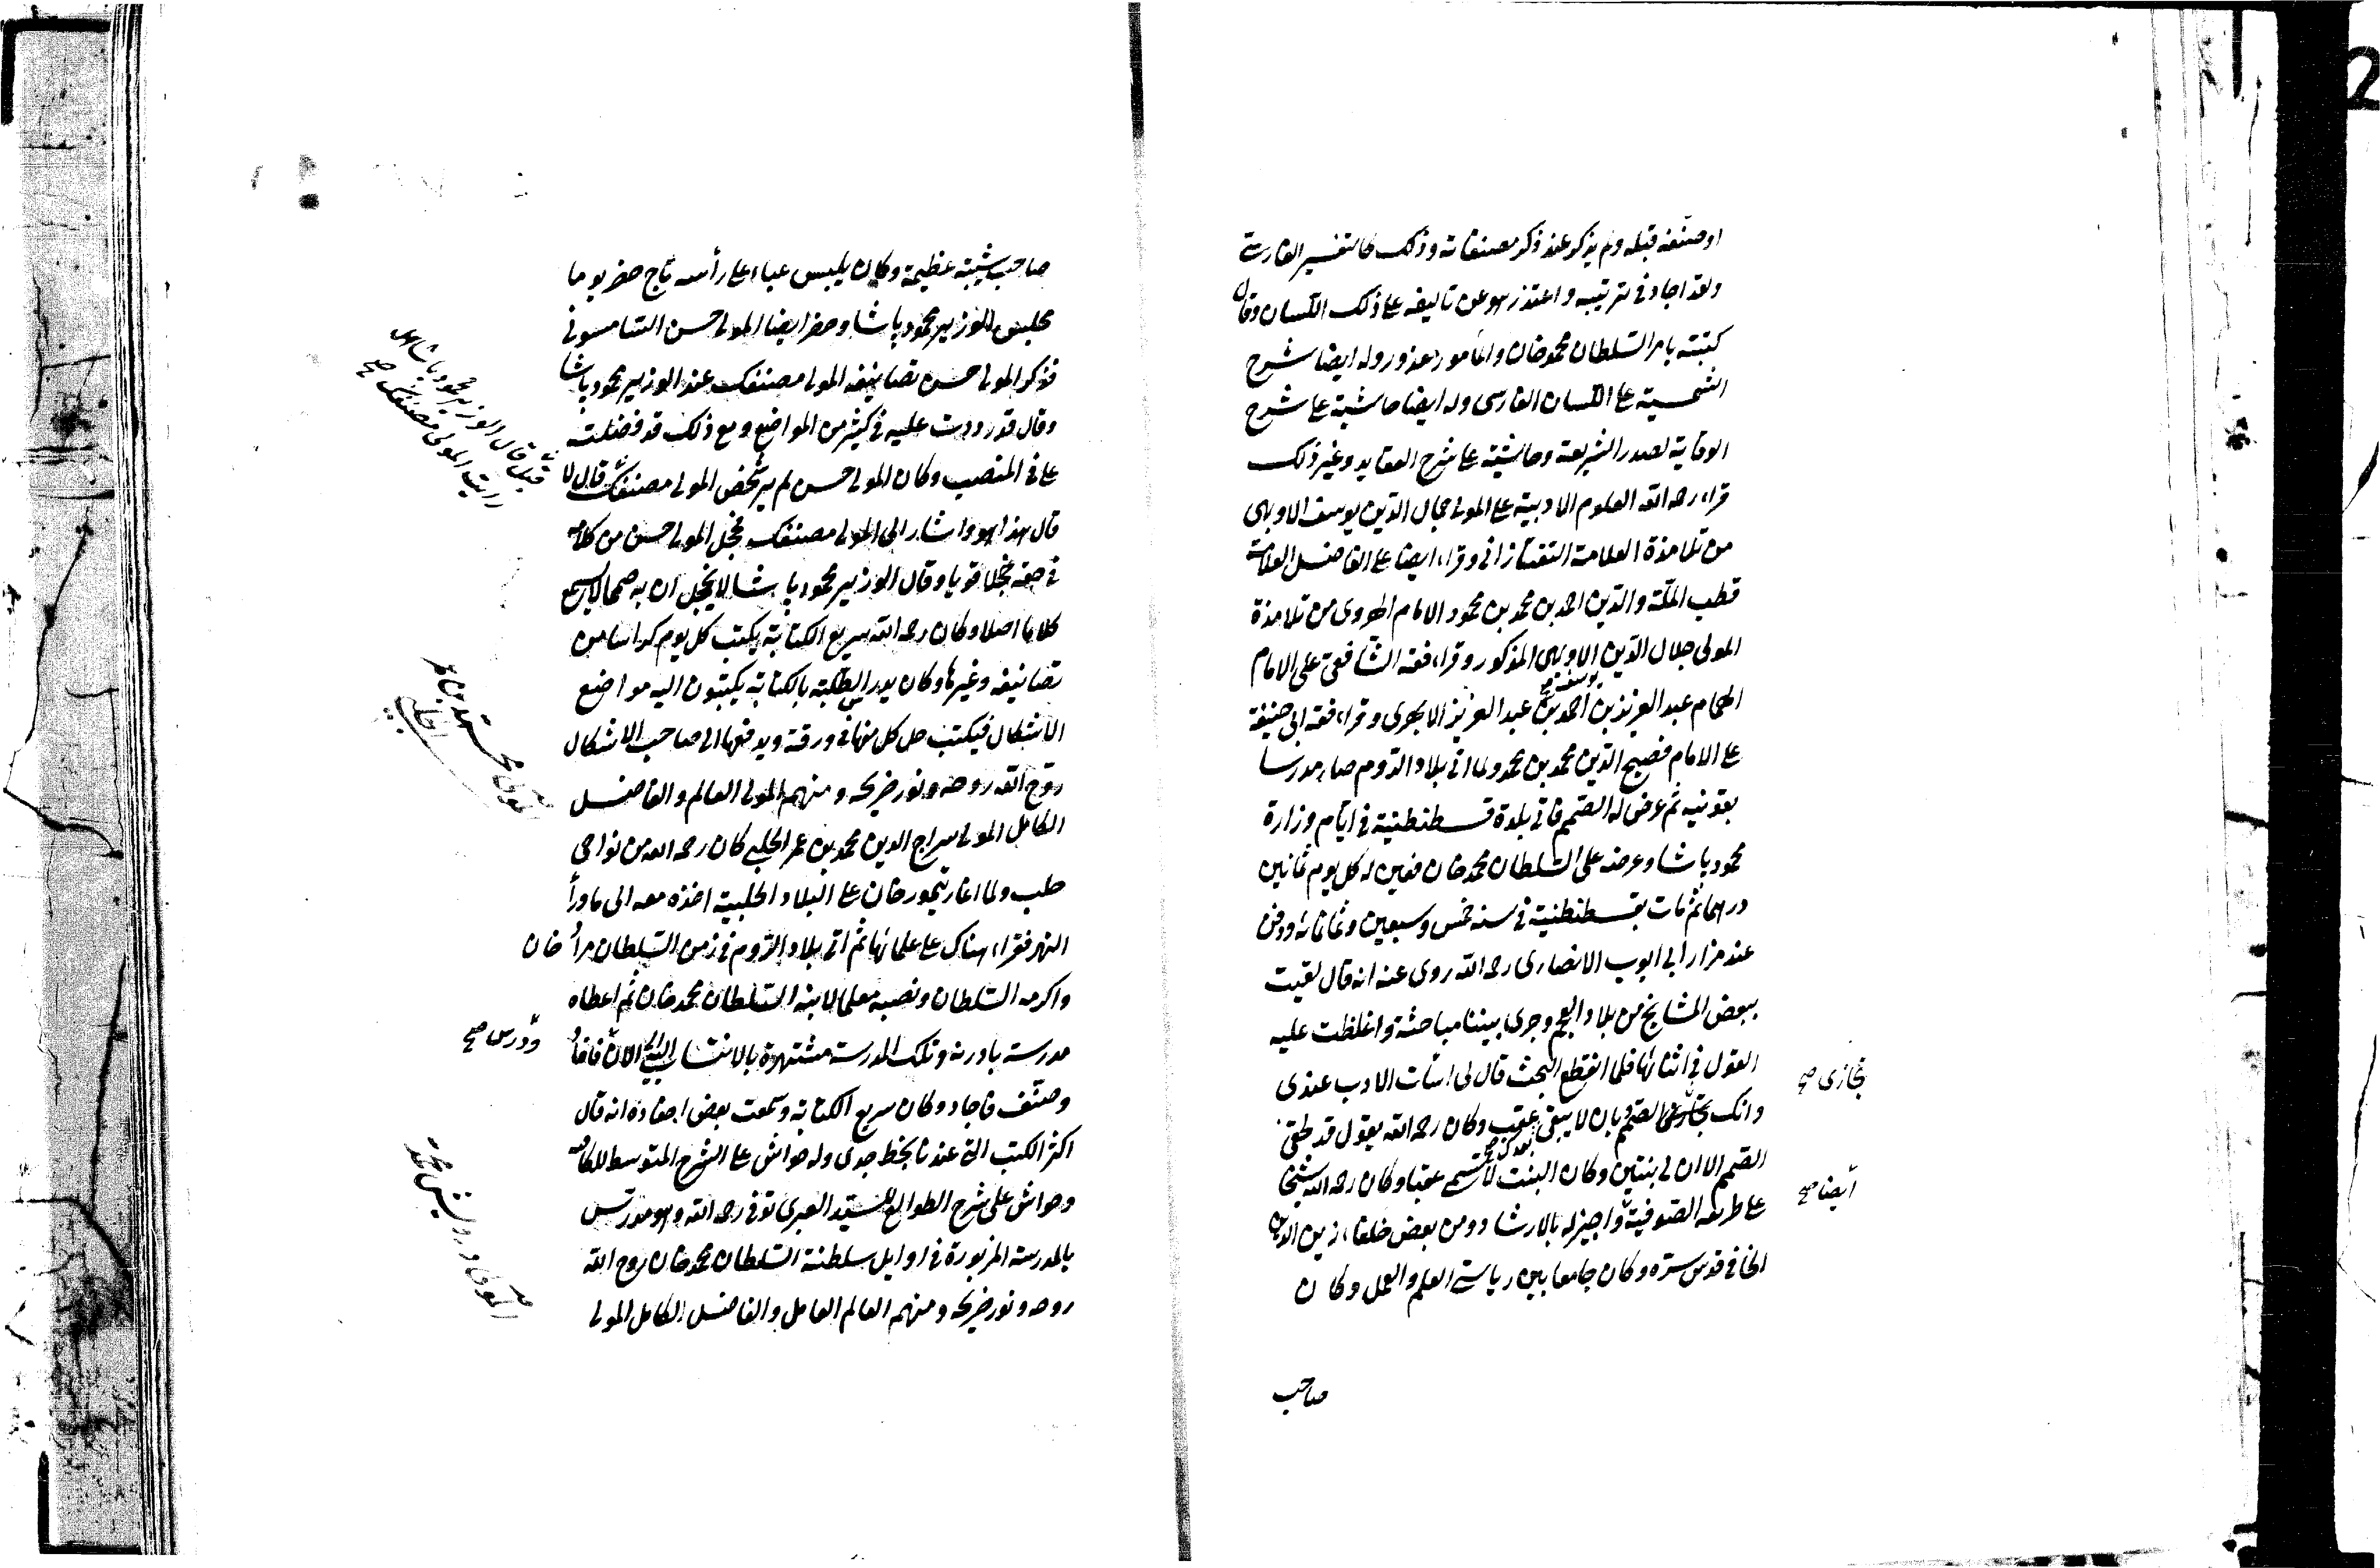 او صنفه قبله ولم يذكر عند ذكر مصنفاته وذلك كالتفسير الفارسى
ولقد اجاد فى ترتيبه واعتذر هو عن تاليفه على ذلك اللسان وقال
كتبته بامر السلطان محمد خان والمأمور معذور وله ايضا شرح
الشمسية على اللسان الفارسى وله ايضا حاشية على شرح
الوقاية لصدر الشريعة وحاشية على شرح العقايد وغير ذلك
قراء رحمه الله العلوم الادبية على المولى جلال الدين يوسف الاوبهى
من تلامذة العلامة التفتازانى وقراء ايضا على الفاضل العلامة
قطب الملة والدين احمد بن محمد بن محمود الامام الهروى من تلامذة
المولى جلال الدين الاوبهى المذكور وقراء فقه الشافعى على الامام
يوسف صح
الهمام عبد العزيز بن احمد بن عبد العزيز الابهرى وقراء فقه ابى حنيفة
على الامام فصيح الدين محمد بن محمد ولما اتى بلاد الروم صار مدرسا
بقونيه ثم عرض له الصمم فاتى بلدة قسطنطنية فى ايام وزارة
محمود باشا وعرضه على السلطان محمد خان فعين له كل يوم ثمانين
درهما ثم مات بقسطنطنية فى سنه خمس وسبعين وثمانمائه ودفن
عند مزار ابى ايوب الانصارى رحمه الله روى عنه انه قال لقيت
ببعض المشايخ من بلاد العجم وجرى بيننا مباحثة واغلظت عليه
القول فى اثنائها فلما انقطع البحث قال لى اسأت الادب عندى
تجازى صح
وانك بالصمم وبان لا يبقى عقب وكان رحمه الله يقول قد لحقنى
الصمم الا ان لى بنتين وكان البنت لا تسمى عقبا وكان رحمه الله شيخا
ايضا صح
على طريقه الصوفية واجيز له بالارشاد من بعض خلفاء زين الدين
الخافى قدس سره وكان جامعا بين رياستى العلم والعمل وكان
صاحب
صاحب شيبة عظيمة وكان يلبس عباء على رأسه تاج حضر يوما
مجلس الوزير محمود باشا وحضر ايضا المولى حسن السامسونى
فذكر المولى حسن تصانيف المولى مصنفك عند الوزير محمود باشا
وقال قد رددت عليه فى كثير من المواضع ومع ذلك قد فضلته
على فى المنصب وكان المولى حسن لم ير شخص المولى مصنفك قال لا
قيل قال الوزير محمود باشا هل
رايت المولى مصنفك صح
قال هذا هو واشار الى المولى مصنفك فخجل المولى حسن من كلامه
فى حقه خجلا قويا وقال الوزير محمود باشا لا تخجل ان به صمما لا يسمع
كلاما اصلا وكان رحمه الله سريع الكتابة يكتب كل يوم كراسا من
تصانيفه وغيرها وكان يدرس الطلبة بالكتابة يكتبون اليه مواضع
الاشكال فيكتب حل كل منها فى ورقة ويدفعها الى صاحب الاشكال
روح الله روحه ونور ضريحه ومنهم المولى العالم والفاضل
الكامل المولى سراج الدين محمد بن عمر الحلبى كان رحمه الله من نواحى
المولى محمد بن عمر
الحلبى
حلب ولما اغار تيمور خان على البلاد الحلبية اخذه معه الى ماوراء
النهر فقراء هناك على علمائها ثم اتى بلاد الروم فى زمن السلطان مراد خان
واكرمه السلطان ونصبه معلما لابنه السلطان محمد خان ثم اعطاه
مدرسة بادرنه وتلك المدرسة مشتهرة بالانتساب اليه الى الان فافاد
ودرس صح
وصنف فاجاد وكان سريع الكتابه وسمعت بعض احفاده انه قال
اكثر الكتب التى عندنا بخط جدى وله حواش على الشرح المتوسط للكافيه
وحواش على شرح الطوالع للسيد العبرى توفى رحمه الله وهو مدرس
بالمدرسة المزبورة فى اوايل سلطنة السلطان محمد خان روح الله
روحه ونور ضريحه ومنهم العالم العامل والفاضل الكامل المولى
المولى درويش محمد